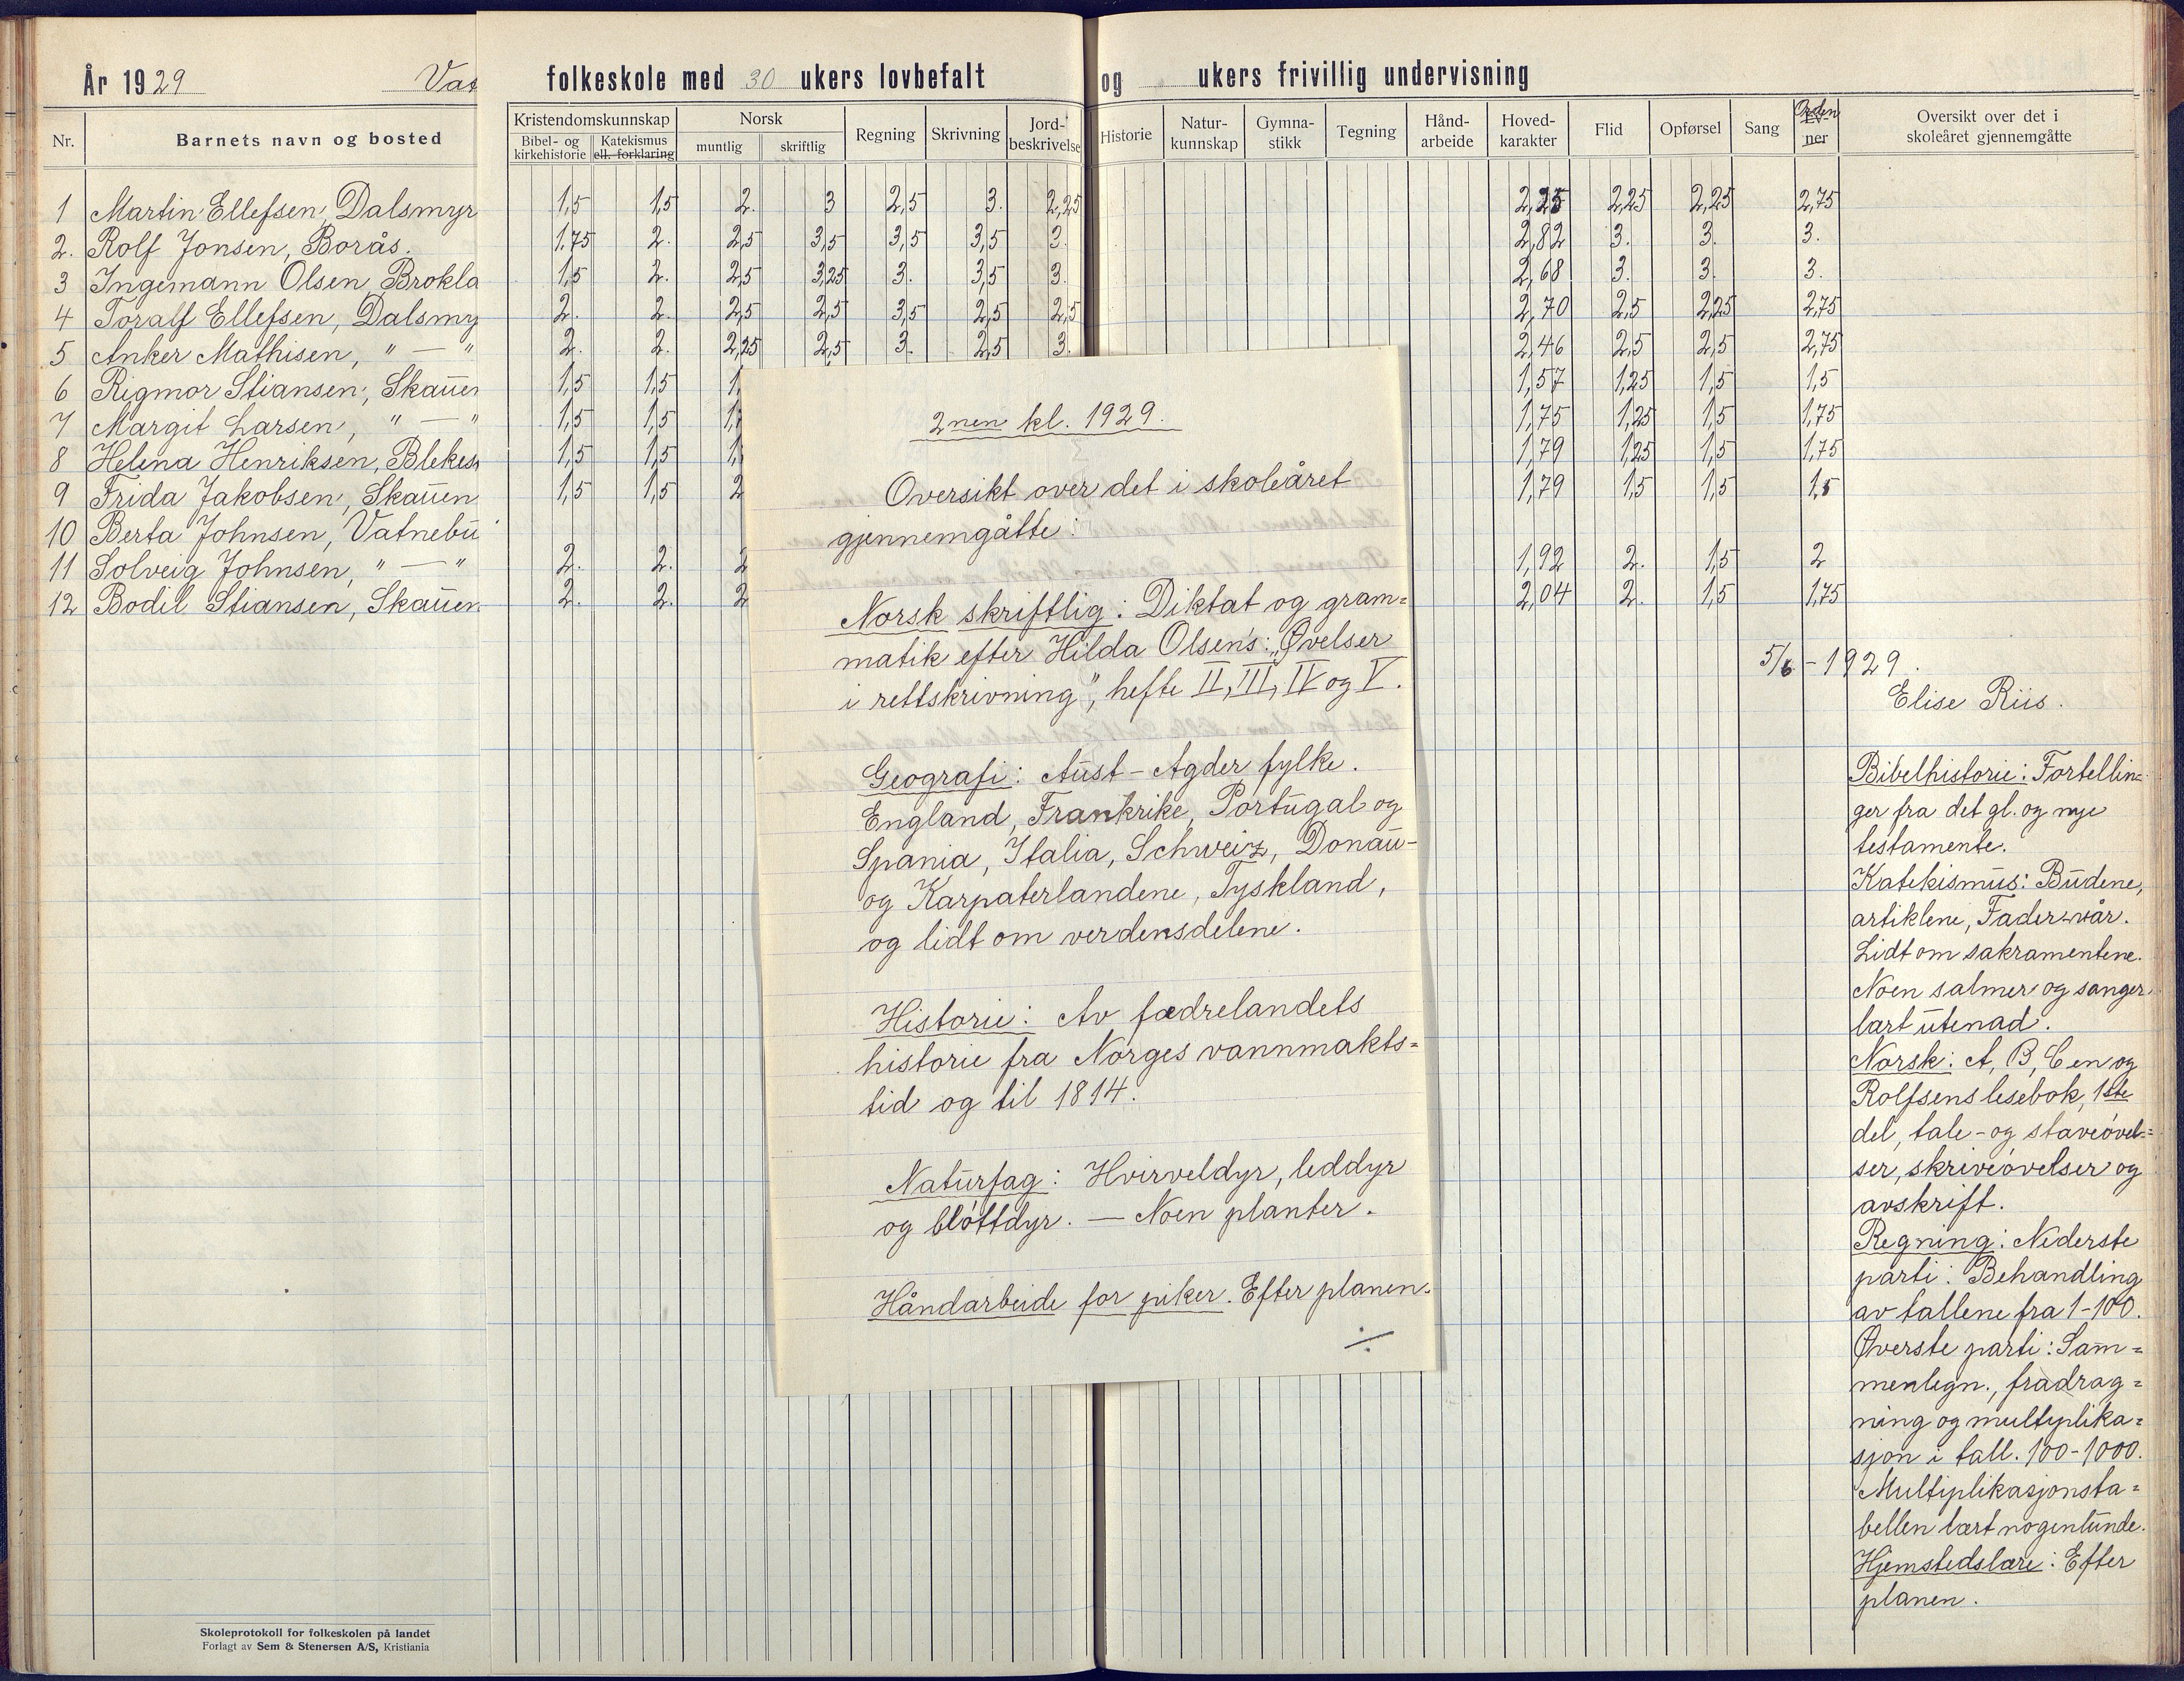 År 1929 Vat folkeskole med 30 ukers lovbefalt og ukers frivillig undervisning
Nr. Barnets navn og bosted Kristendomskunnskap Bibel- og kirkehistorie Katekismus ell. forklaring Norsk muntlig skriftlig Regning Skrivning Jord-beskrivelse Historie Natur-kunnskap Gymna-stikk Tegning Hånd-arbeide Hoved-karakter Flid Opførsel Sang Orden Ev-ner Oversikt over det i skoleåret gjennemgåtte
1 Martin Ellefsen, Dalsmyr 1,5 1,5 2. 3 2,5 3. 2,25 2,25 2,25 2,25 2,75
2. Rolf Jonsen, Borås. 1,75 2. 2,5 3,5 3,5 3,5 3. 2,82 3. 3. 3.
3 Ingemann Olsen, Brokla 1,5 2. 2,5 3,25 3. 3,5 3. 2,68 3. 3. 3.
4 Toralf Ellefsen, Dalsmy 2. 2. 2,5 2,5 3,5 2,5 2,5 2,70 2,5 2,25 2,75
5 Anker Mathisen, " — " 2. 2. 2,25 2,5 3. 2,5 3. 2,46 2,5 2,5 2,75
6 Rigmor Stiansen, Skauen 1,5 1,5 1, 1,57 1,25 1,5 1,5
7 Margit Larsen, " — " 1,5 1,5 1,7 1,75 1,25 1,5 1,75
8 Helena Henriksen, Blekes 1,5 1,5 1, 1,79 1,25 1,5 1,75
9 Frida Jakobsen, Skauen 1,5 1,5 2 1,79 1,5 1,5 1,5
10 Berta Johnsen, Vatnebu
11 Solveig Johnsen, " — " 2. 2. 2 1,92 2. 1,5 2
12 Bodil Stiansen, Skauen 2. 2. 2 2,04 2. 1,5 1,75
2nen kl. 1929.
Oversikt over det i skoleåret
gjennemgåtte:
Norsk skriftlig: Diktat og gram=
matik efter Hilda Olsens: „Øvelser
i rettskrivning", hefte II, III, IV og V.
Geografi: Aust-Agder fylke.
England, Frankrike, Portugal og
Spania, Italia, Schweiz, Donau-
og Karpaterlandene, Tyskland,
og lidt om verdensdelene.
Historie: Av fædrelandets
historie fra Norges vannmakts=
tid og til 1814.
Naturfag: Hvirveldyr, leddyr
og bløttdyr. — Noen planter.
Håndarbeide for piker. Efter planen.
./.
5/6 - 1929.
Elise Riis.
Bibelhistorie: Fortellin=
ger fra det gl. og nye
testamente.
Katekismus: Budene,
artiklene, Fader-vår.
Lidt om sakramentene.
Noen salmer og sanger
lært utenad.
Norsk: A, B, C en og
Rolfsens lesebok, 1ste
del, tale- og staveøvel=
ser, skriveøvelser og
avskrift.
Regning: Nederste
parti: Behandling
av tallene fra 1-100.
Øverste parti: Sam=
menlegn., fradrag=
ning og multiplika=
sjon i tall. 100-1000.
Multiplikasjonsta=
bellen lært nogenlunde.
Hjemstedslære: Efter
planen.
Skoleprotokoll for folkeskolen på landet
Forlagt av Sem & Stenersen A/S, Kristiania